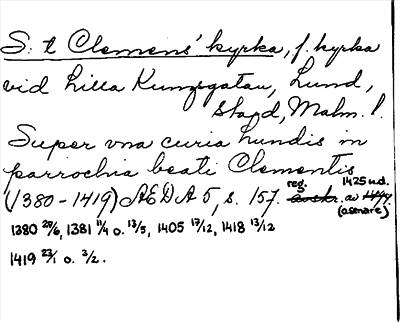 S:t Clemens' kyrka, f. kyrka
vid Lilla Kungsgatan, Lund,
stad, Malm. l.
Super vna curia Lundis in
parrochia beati Clementis
(1380-1419) ÆDA 5, s. 157. reg. av 1425 n.d. (asmare)
1380 29/6, 1381 11/4 o. 13/5, 1405 17/12, 1418 13/12
1419 23/1 o. 3/2.